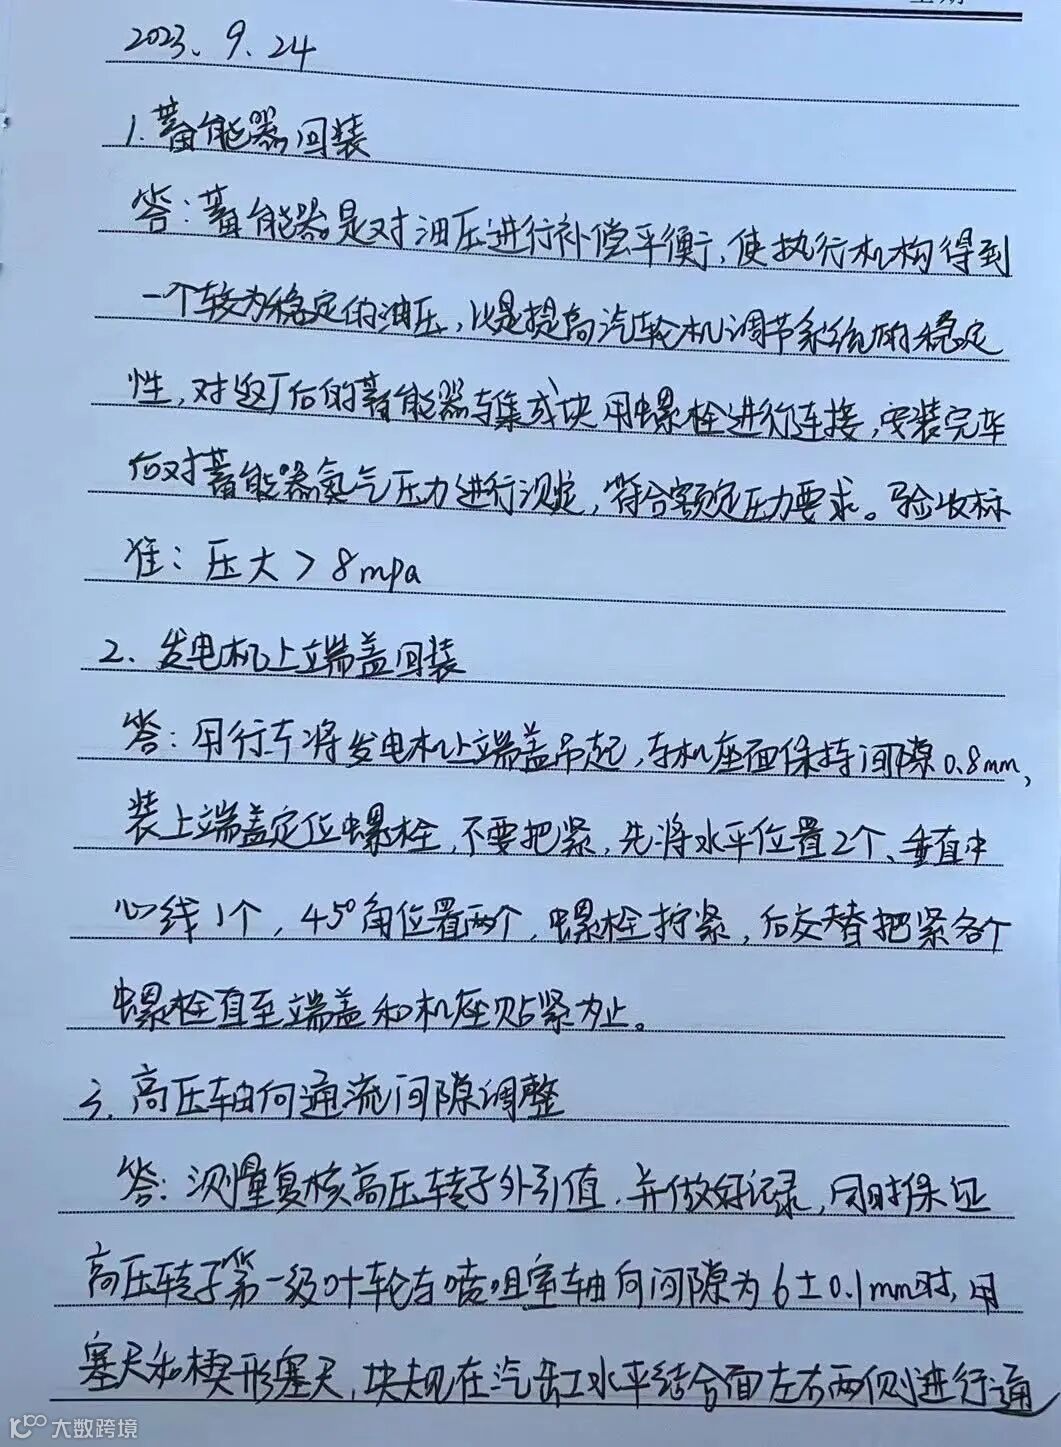 2023.9.24
1.蓄能器回装
答:蓄能器是对油压进行补偿平衡,使执行机构得到
一个较为稳定的油压,以是提高汽轮机调节系统的稳定
性,对返厂后的蓄能器与集成块用螺栓进行连接,安装完毕
后对蓄能器氮气压力进行测定,符合额定压力要求。验收标
准:压大>8mpa
2.发电机上端盖回装
答:用行车将发电机上端盖吊起,与机座面保持间隙0.8mm,
装上端盖定位螺栓,不要把紧,先将水平位置2个、垂直中
心线1个,45°角位置两个,螺栓拧紧,后交替把紧各个
螺栓直至端盖和机座贴紧为止。
3.高压轴向通流间隙调整
答:测量复核高压转子外引值,并做好记录,同时保证
高压转子第一级叶轮与喷咀室轴向间隙为6±0.1mm时,用
塞尺和楔形塞尺,块规在汽缸水平结合面左右两侧进行通
大数跨境